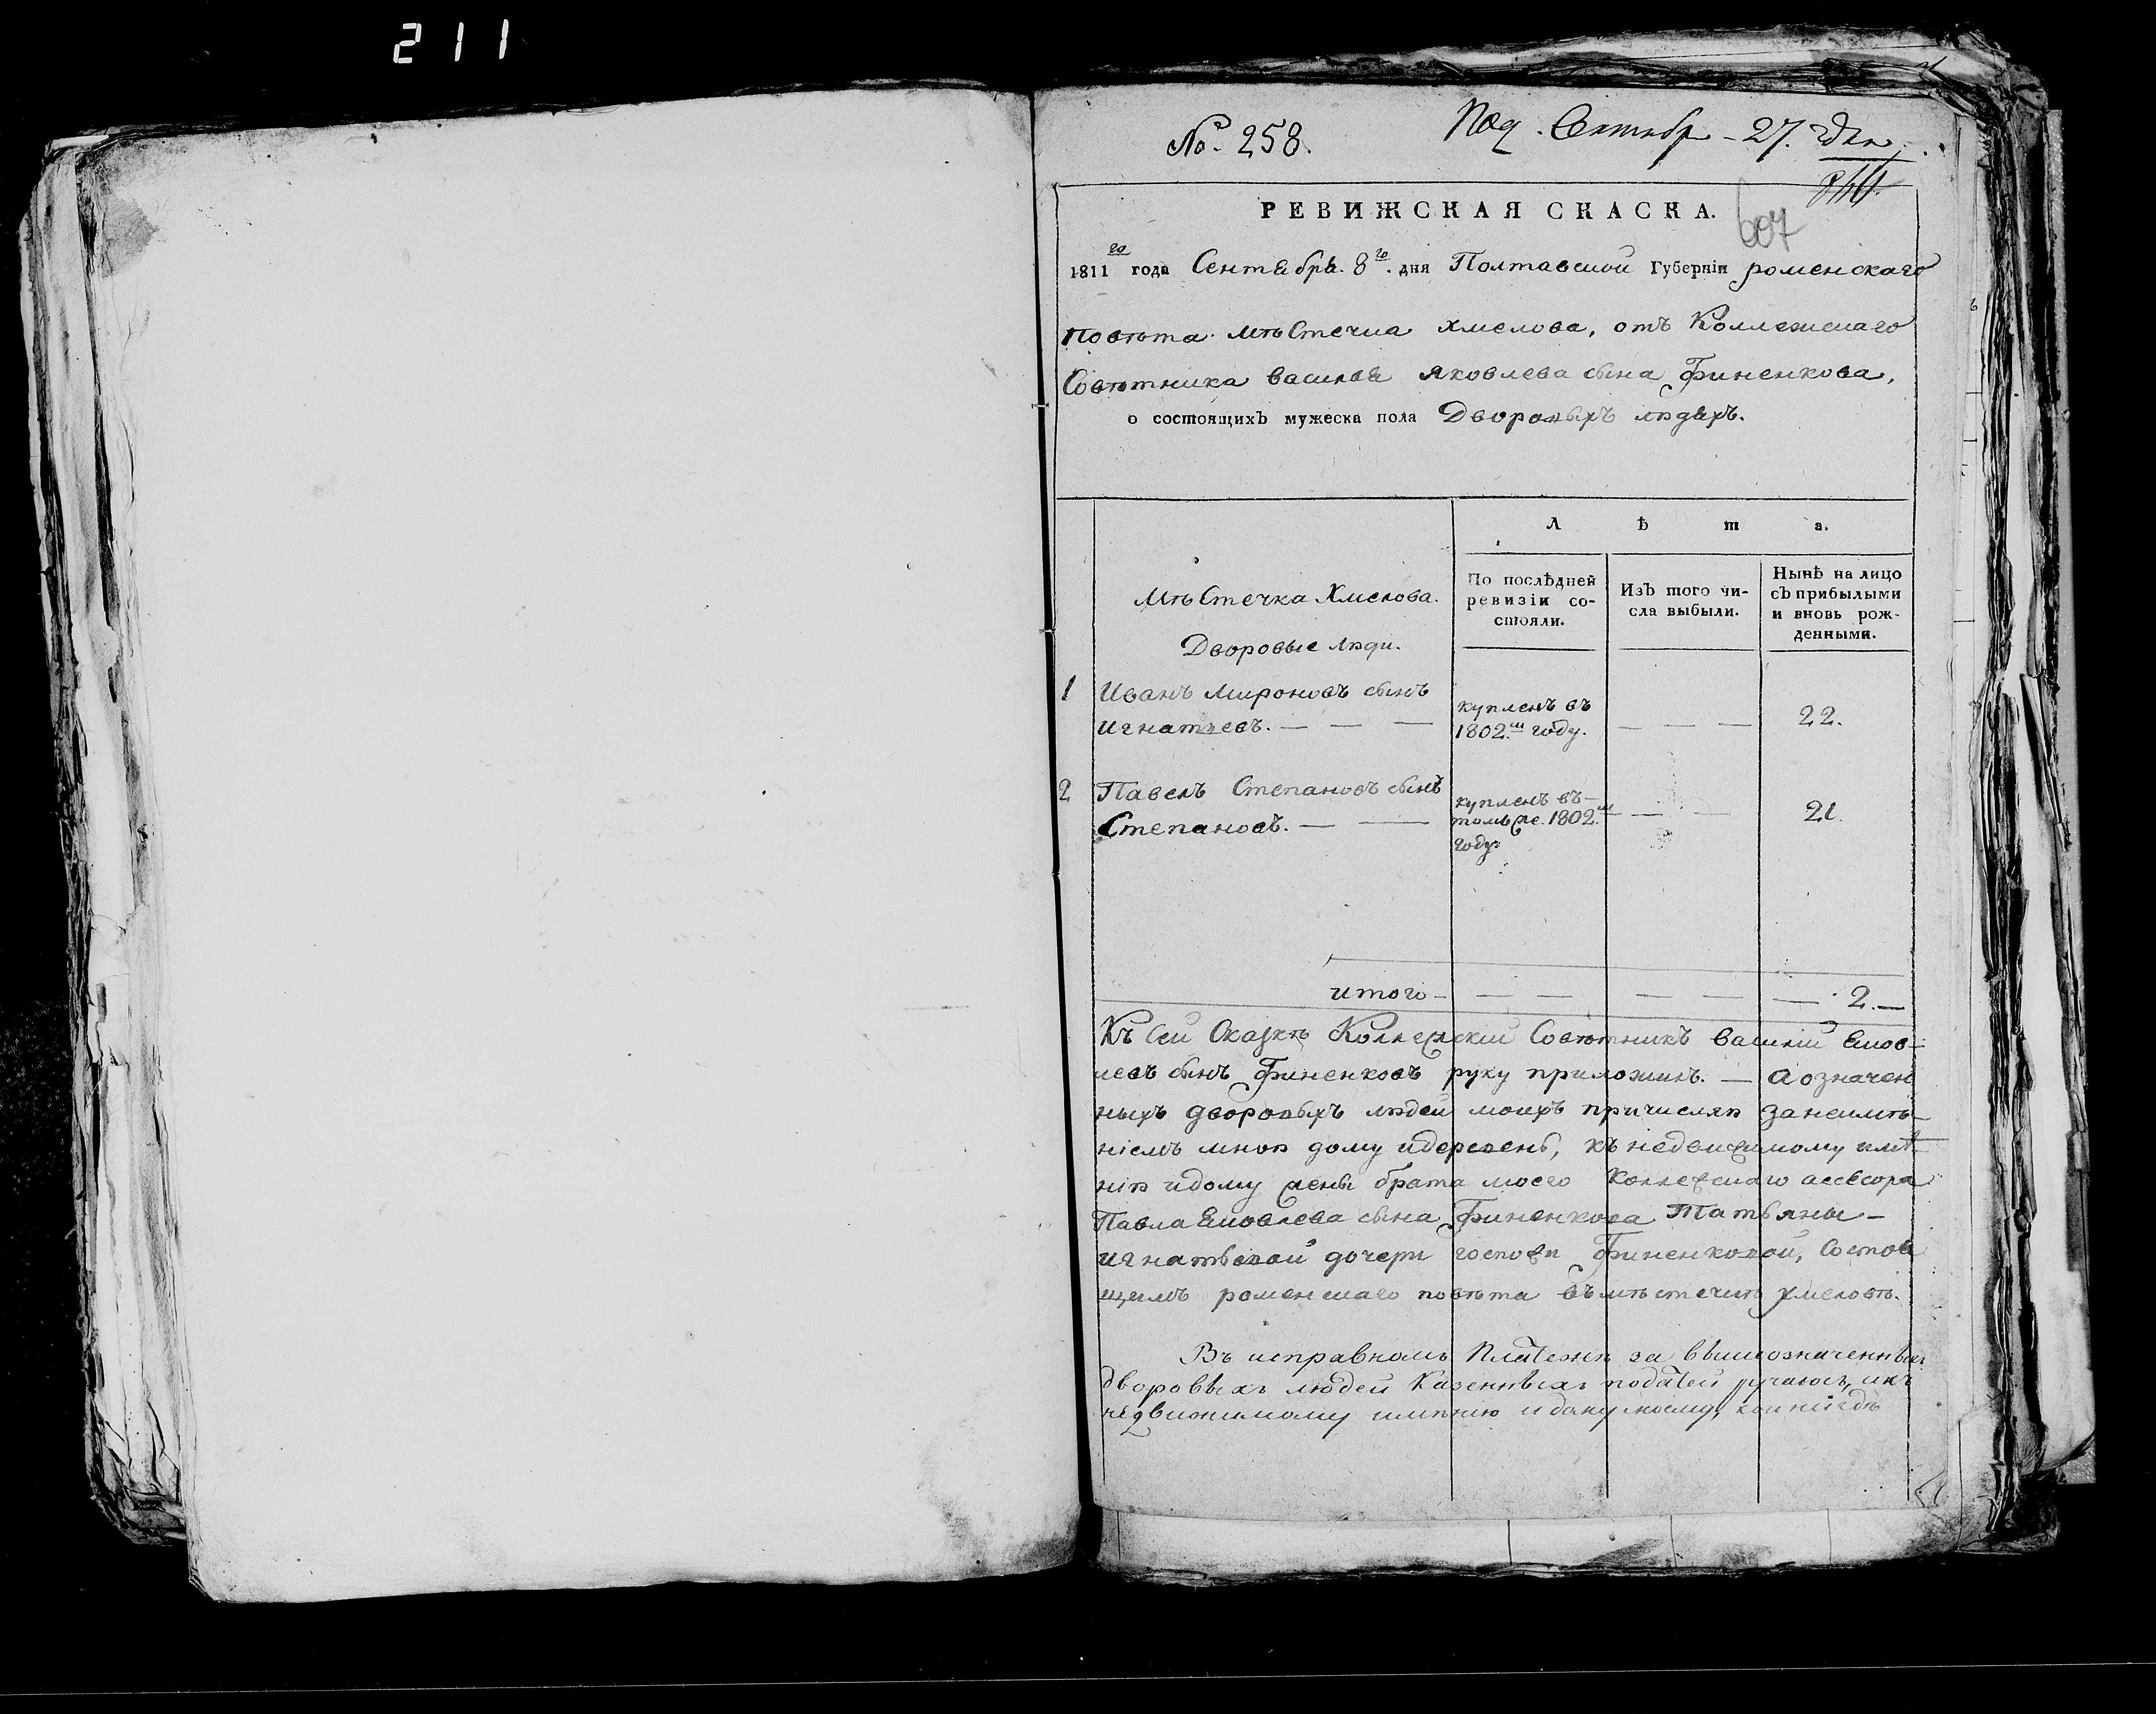 211
№. 258.
Под. Сентябр - 27. дня
607
РЕВИЖСКАЯ СКАСКА.
1811го года Сентября. 8го. дня Полтавской Губерніи роменскаго
Повѣта. мѣстечка хмелова, отъ Коллежскаго
Совѣтника василья яковлева сына Финенкова,
о состоящихъ мужеска пола Дворовыхъ людяхъ.
Л ѣ т а.
Мѣстечка Хмелова.
Дворовые люди.
По послѣдней ревизіи со-стояли.
Изъ того чи-сла выбыли.
Нынѣ на лицо съ прибылыми и вновь рож-денными.
1 Иванъ Мироновъ сынъ
игнатьевъ. — — — купленъ въ 1802м году. — — — 22.
2 Павелъ Степановъ сынъ
Степановъ. — — купленъ въ — томъ же. 1802м году: — — 21.
итого — — — — — — 2. —
Къ сей Сказкѣ Коллежскій Совѣтникъ василій Яков-
левъ сынъ Финенковъ руку приложилъ. — а означен
ныхъ дворовыхъ людей моихъ причисляю занеимѣ-
ніемъ мною дому идеревень, къ недвижимому имѣ-
нію идому жены брата моего Коллежскаго асесора
Павла Яковлева сына Финенкова Татьяны —
игнатьевой дочери госпожи Финенковой, состоя
щимъ роменскаго повѣта въ мѣстечкѣ хмеловѣ.
Въ исправномъ Платежѣ за вышеозначенныхъ
дворовыхъ людей Казенныхъ податей ручаюсь, икъ
недвижимому имѣнію идому моему,